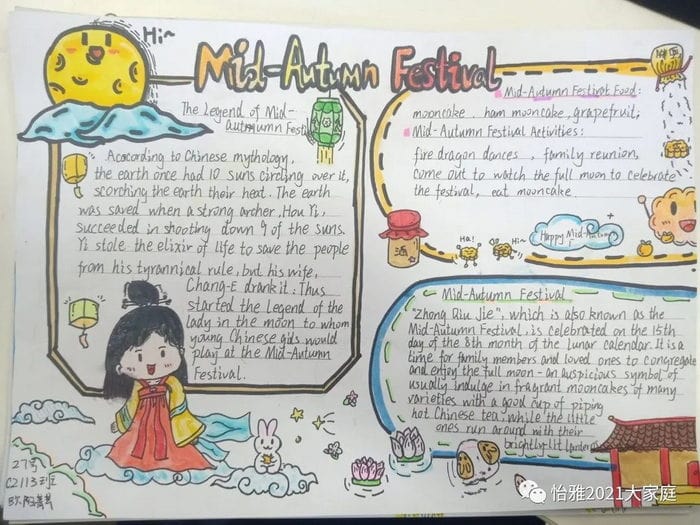 Hi~
Mid-Autumn Festival
The Legend of Mid-
autmumn Festi
Acocording to Chinese mythology,
the earth once had 10 suns circling over it,
scorching the earth their heat. The earth
was saved when a strong archer, Hou Yi,
succeeded in shooting down 9 of the suns.
Yi stole the elixir of life to save the people
from his tyrannical rule, but his wife,
Chang-E drank it. Thus
started the legend of the
lady in the moon to whom
young Chinese girls would
play at the Mid-Autumn
Festival.
Mid-Autumn Festival Food:
mooncake、ham mooncake, grapefruit;
Mid-Autumn Festival Activities:
fire dragon dances、family reunion,
come out to watch the full moon to celebrate
the festival、eat mooncake
酒
Ha!
Hi~
Happy Mid-Autumn
!
Mid-Autumn Festival
"Zhong Qiu Jie", which is also known as the
Mid-Autumn Festival, is celebrated on the 15th
day of the 8th month of the lunar calendar. It is a
time for family members and loved ones to congregate
and enjoy the full moon - an auspicious symbol of
usually indulge in fragrant mooncakes of many
varieties with a good cup of piping
hot Chinese tea, while the little
ones run around with their
brightly-lit lanterns
27号
C2113班
欧阳
怡雅2021大家庭